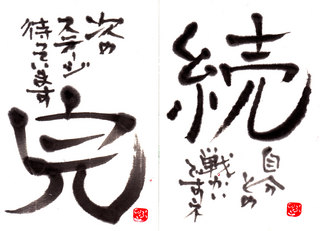 続
自分との
戦かい
ですネ
次の
ステージ
待っています
完